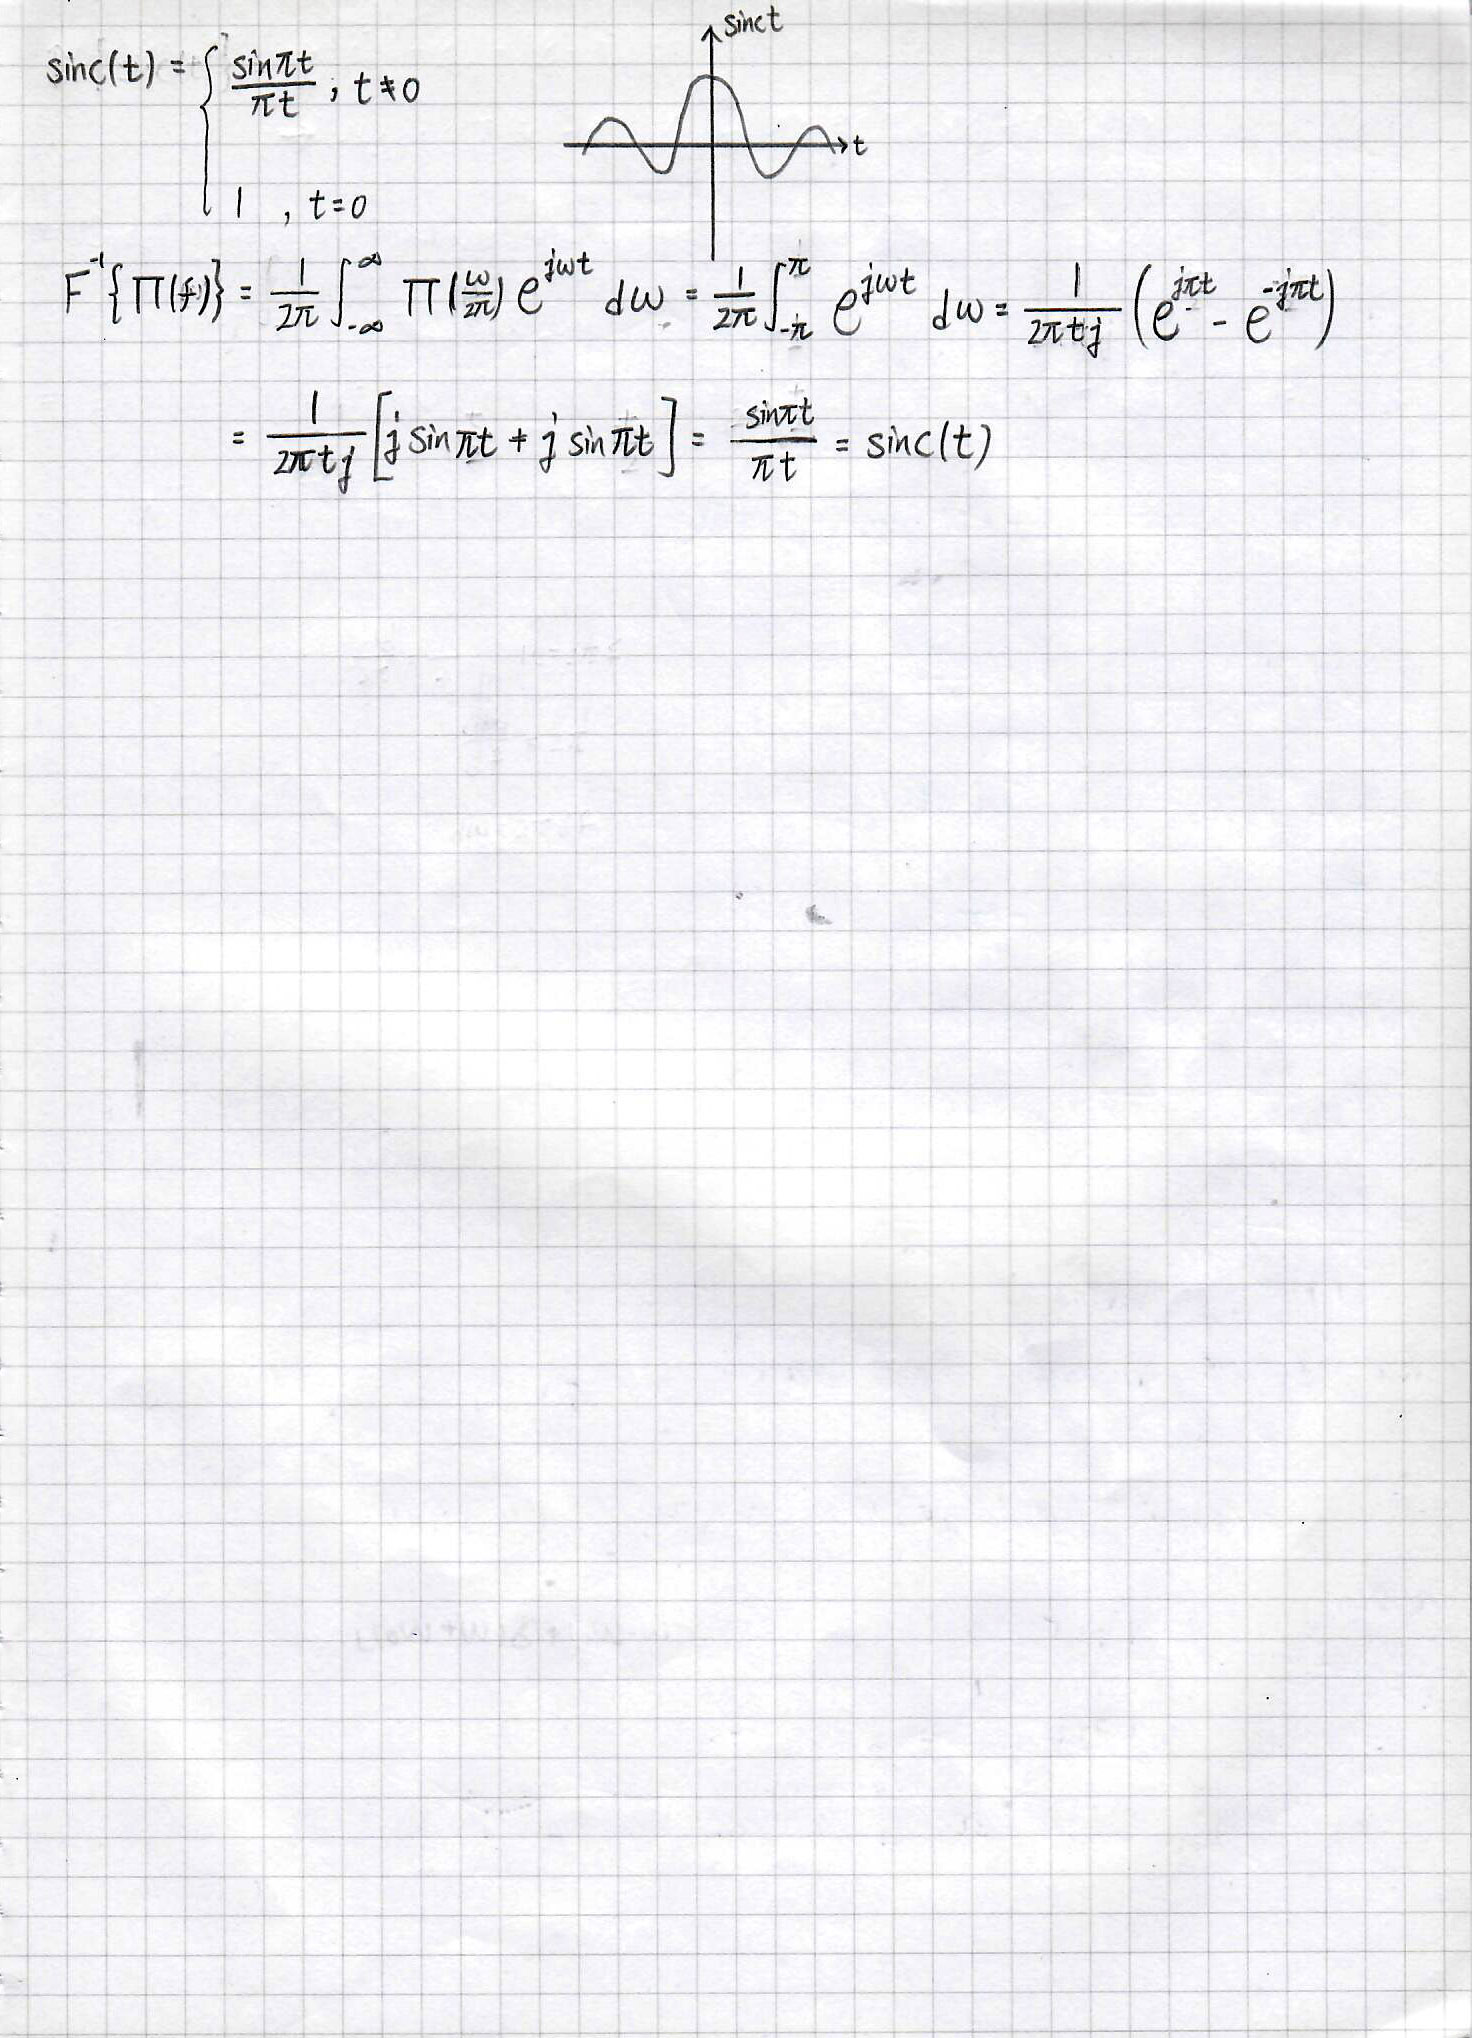 sinc(t) = { sinπt / πt , t ≠ 0
1 , t = 0
sinc t
t
F⁻¹{Π(f)} = 1/2π ∫_{-∞}^{∞} Π(ω/2π) e^{jωt} dω = 1/2π ∫_{-π}^{π} e^{jωt} dω = 1/2πtj (e^{jπt} - e^{-jπt})
= 1/2πtj [j sinπt + j sinπt] = sinπt / πt = sinc(t)